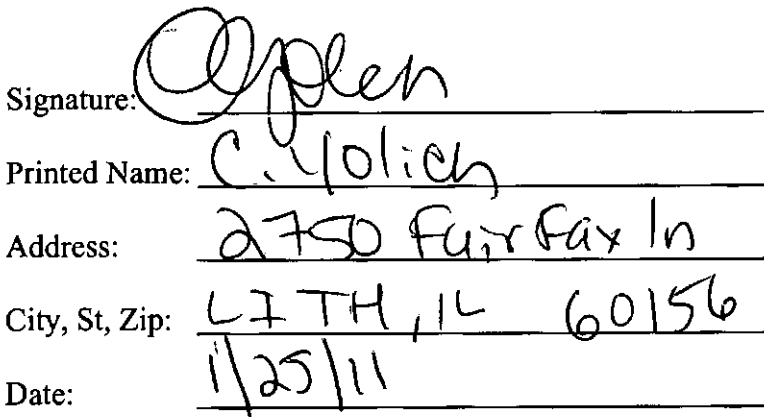 Signature:
Printed Name: C. Yolich
Address: 2750 Fairfax ln
City, St, Zip: LITH, IL 60156
Date: 1/25/11